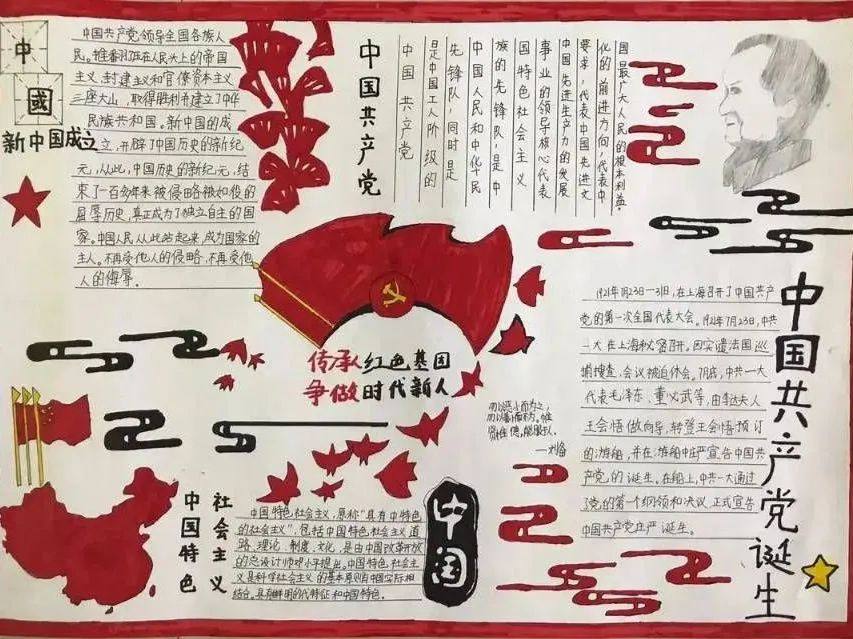 中
國
新中国成立
中国共产党领导全国各族人
民，推翻了压在人民头上的帝国
主义、封建主义和官僚资本主义
三座大山，取得胜利并建立了中华
民族共和国。新中国的成
立，开辟了中国历史的新纪
元，从此，中国历史的新纪元，结
束了一百多年来被侵略被奴役的
屈辱历史，真正成为了独立自主的国
家。中国人民从此站起来，成为国家的
主人。不再受他人的侵略，不再受他
人的侮辱。
中国共产党
中国共产党
是中国工人阶级的
先锋队，同时是
中国人民和中华民
族的先锋队，是中
国特色社会主义
事业的领导核心代表
中国先进生产力的发展
要求，代表中国先进文
化的前进方向，代表中
国最广大人民的根本利益。
传承红色基因
争做时代新人
中国共产党诞生
1921年7月23日—31日，在上海召开了中国共产
党的第一次全国代表大会。1921年7月23日，中共
一大在上海秘密召开。因突遭法国巡
捕搜查，会议被迫休会。7月底，中共一大
代表毛泽东、董必武等，由李达夫人
王会悟做向导，转登王会悟预订
的游船，并在游船中庄严宣告中国共
产党的诞生。在船上，中共一大通过
了党的第一个纲领和决议，正式宣告
中国共产党庄严诞生。
勿以恶小而为之，
勿以善小而不为。惟
贤惟德，能服于人。
—刘备
社会主义
中国特色
中国特色社会主义，原称“具有中特色
的社会主义”，包括中国特色社会主义道
路、理论、制度、文化，是由中国改革开放
的总设计师邓小平提出。中国特色社会主
义是科学社会主义的基本原则与中国实际相
结合。具有鲜明的时代特征和中国特色。
中国